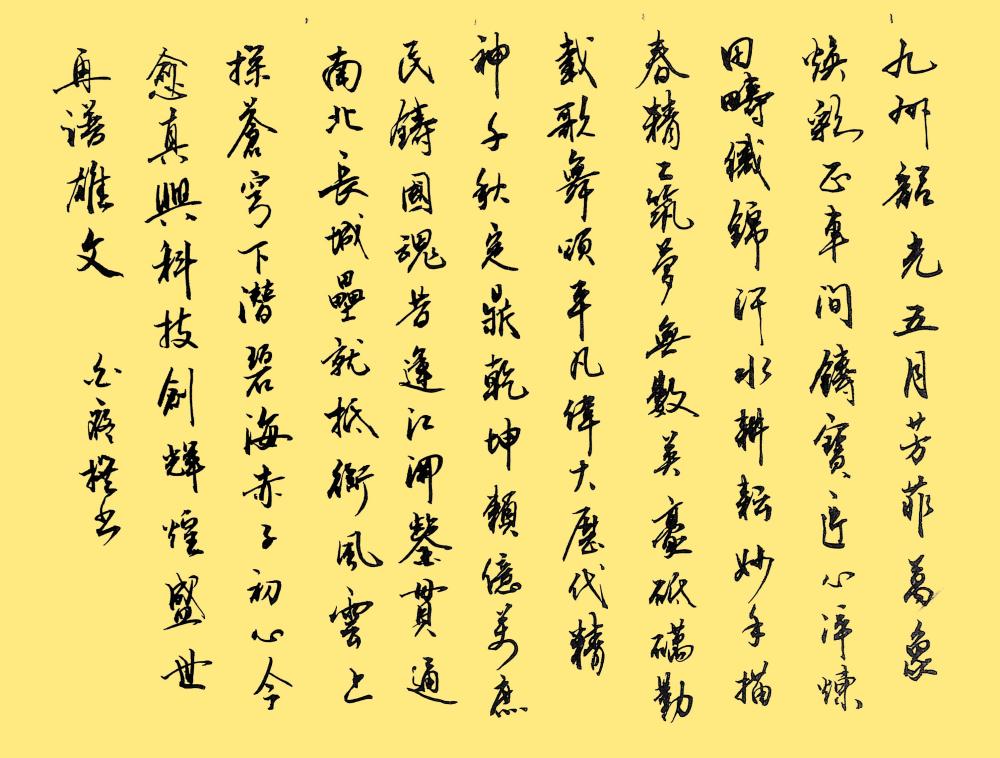 九州韶光五月芳菲萬象
煥彩正車間鑄寶匠心淬煉
田疇織錦汗水耕耘妙手描
春精工筑夢無數英豪砥礪勤
載歌舞頌平凡偉大歷代精
神千秋定鼎乾坤賴億萬庶
民鑄國魂昔運河開鑿貫通
南北長城壘就抵御風雲上
探蒼穹下潛碧海赤子初心今
愈真興科技創輝煌盛世
再譜雄文